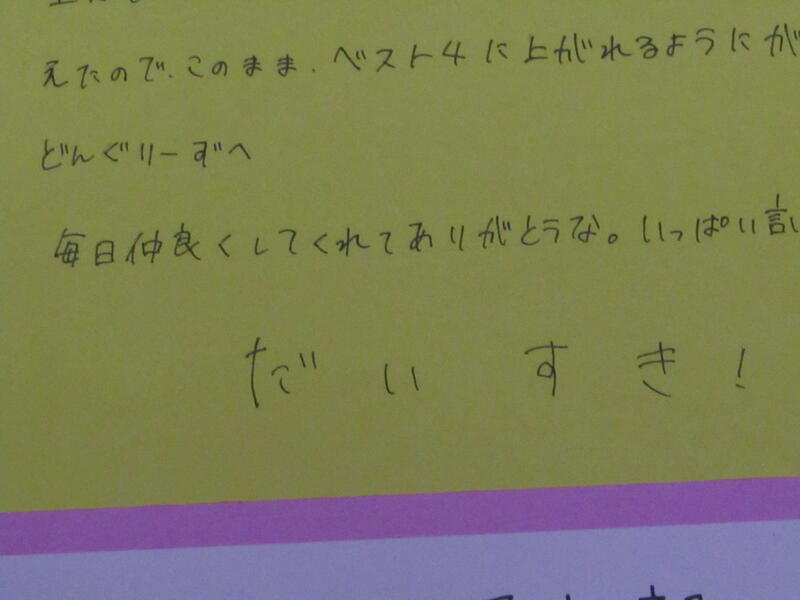 えたので、このまま、ベスト4に上がれるようにが
どんぐりーずへ
毎日仲良くしてくれてありがとうな。いっぱい言い
だいすき!